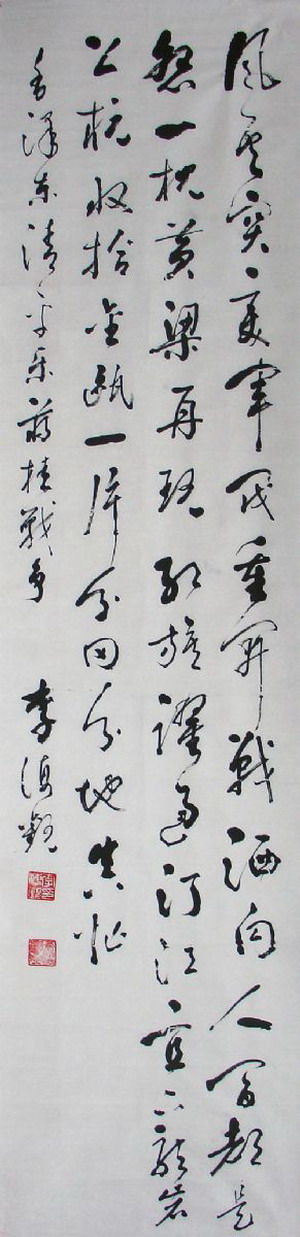 风云突变军阀重开战洒向人间都是
怨一枕黄粱再现红旗跃过汀江直下龙岩
上杭收拾金瓯一片分田分地真忙
毛泽东清平乐蒋桂战争
李海观